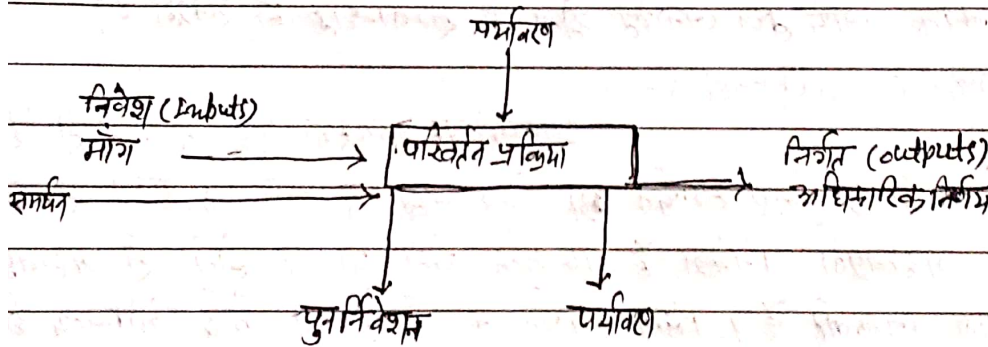 पर्यावरण
निवेश (Inputs)
माँग
परिवर्तन प्रक्रिया
निर्गत (outputs)
समर्थन
आधिकारिक निर्णय
पुनर्निवेशन
पर्यावरण